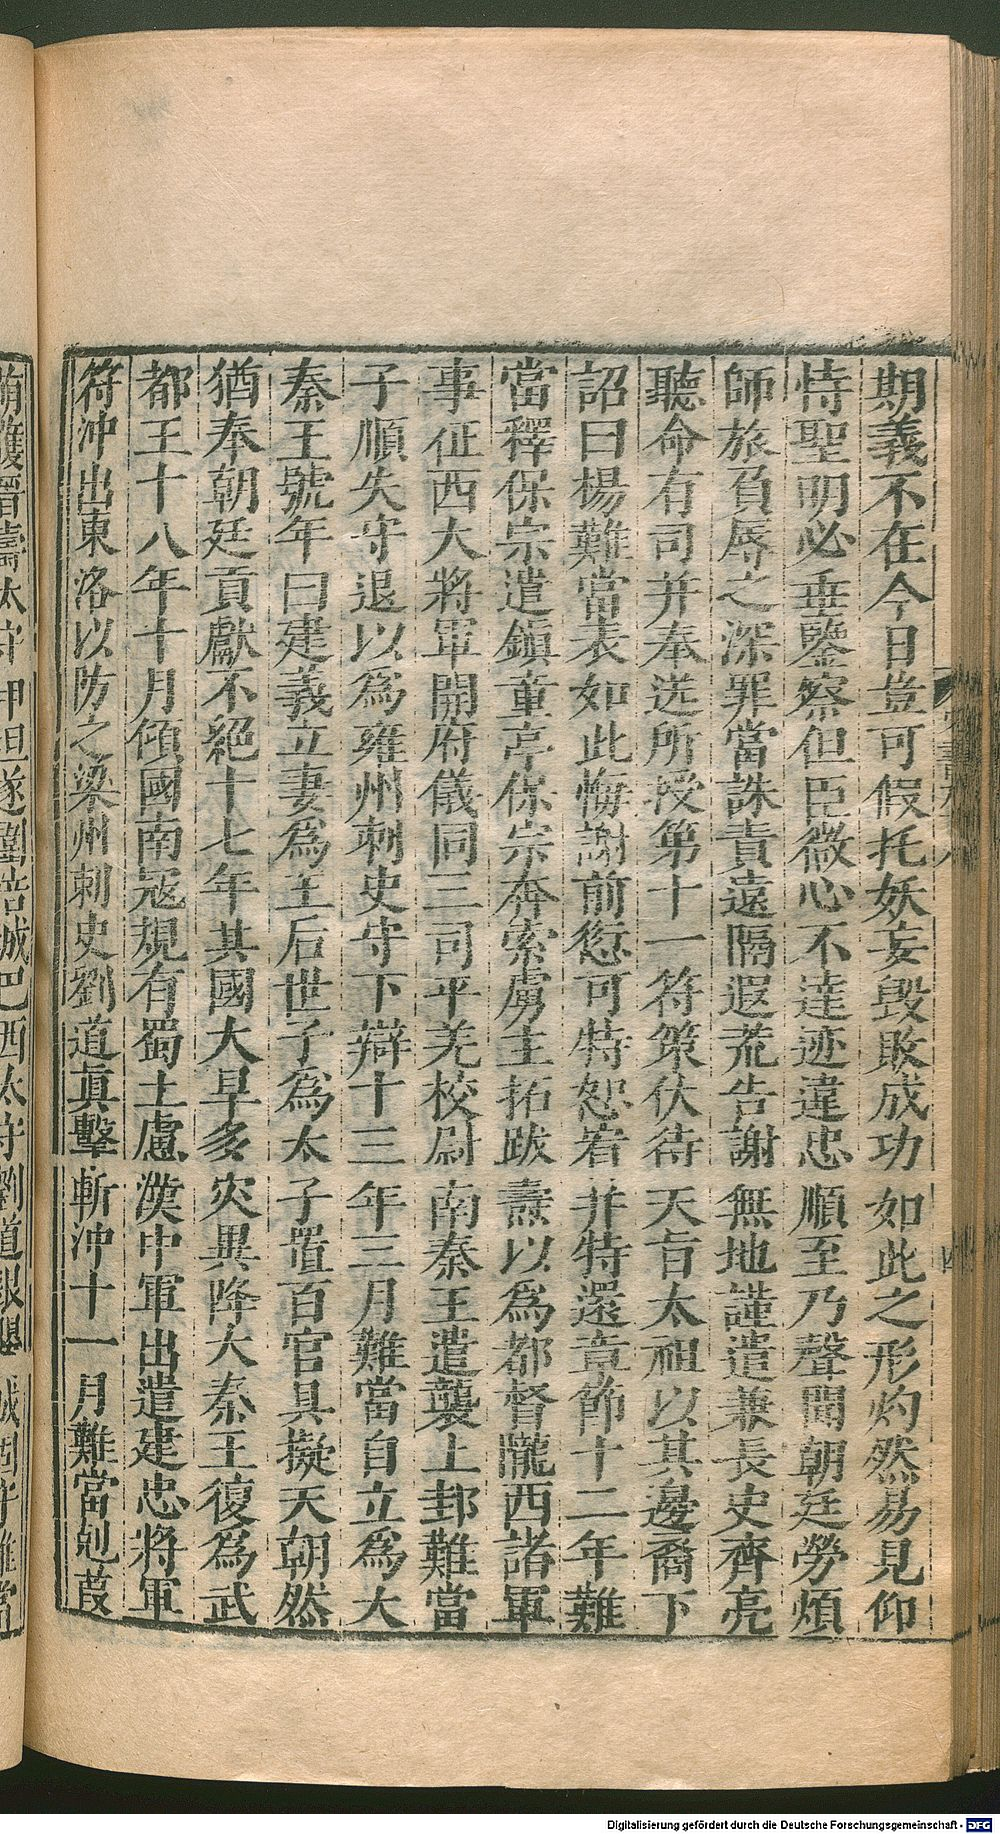 期義不在今日豈可假托妖妄毀敗成功如此之形灼然易見仰
恃聖明必垂鑒察但臣微心不達迹違忠順至乃聲聞朝廷勞煩
師旅負辱之深罪當誅責遠隔遐荒告謝無地謹遣兼長史齊亮
聽命有司并奉送所授第十一符策伏待天旨太祖以其邊裔下
詔曰楊難當表如此悔謝前愆可特恕宥并特還章節十二年難
當釋保宗遣鎮童亭保宗奔索虜主拓跋燾以為都督隴西諸軍
事征西大將軍開府儀同三司平羌校尉南秦王遣襲上邽難當
子順失守退以為雍州刺史守下辯十三年三月難當自立為大
秦王號年曰建義立妻為王后世子為太子置百官具擬天朝然
猶奉朝廷貢獻不絕十七年其國大旱多災異降大秦王復為武
都王十八年十月傾國南寇規有蜀土慮漢中軍出遣建忠將軍
符沖出東洛以防之梁州刺史劉道真擊斬沖十一月難當剋葭
萌獲晉壽太守申坦遂圍涪城巴西太守劉道銀嬰城固守難當
Digitalisierung gefördert durch die Deutsche Forschungsgemeinschaft - DFG